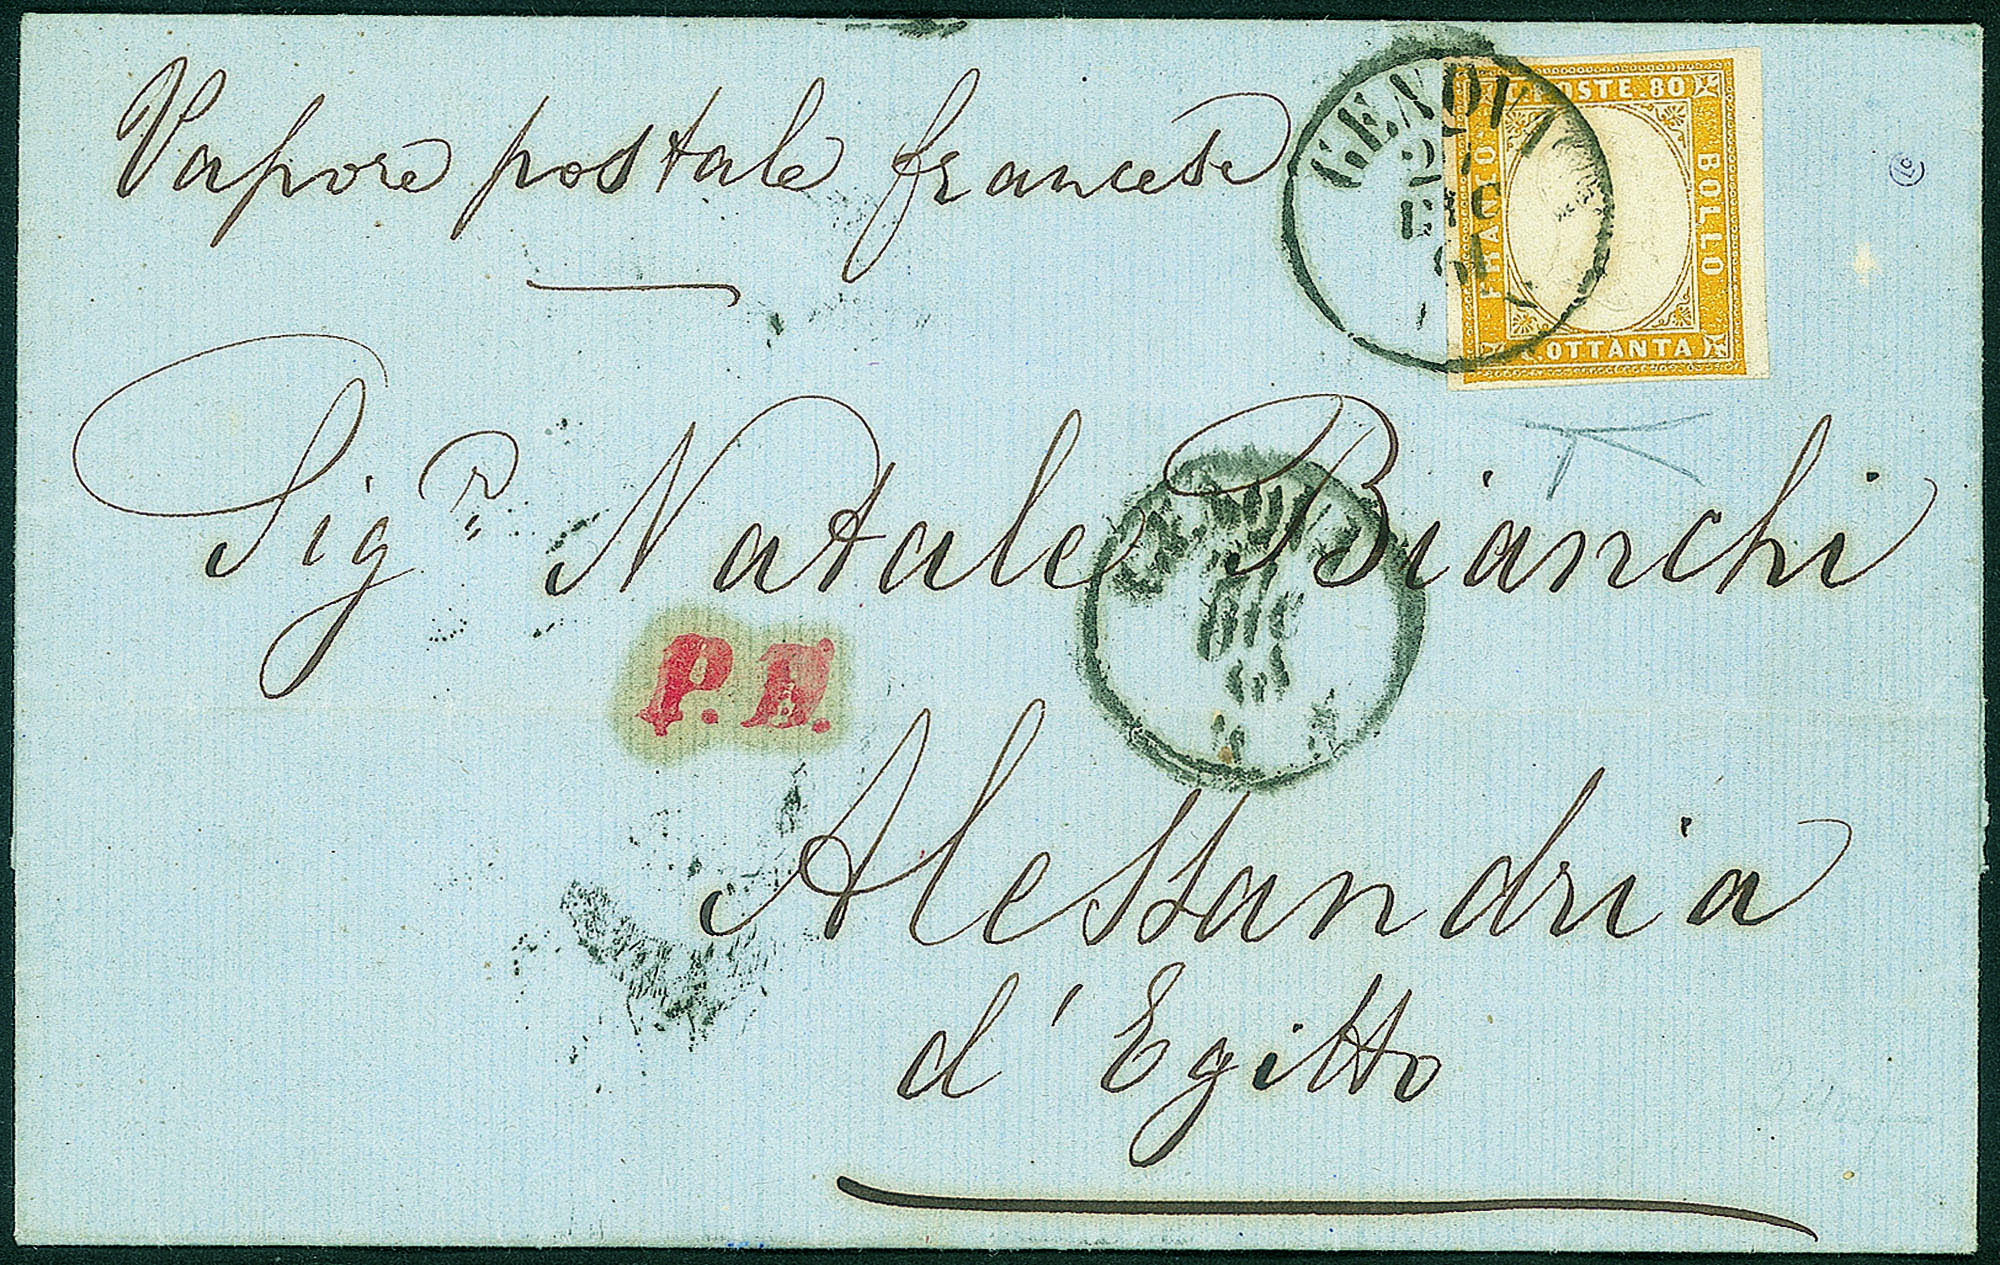 Vapore postale francese
GENOVA
27
DIC
61
POSTE. 80
FRANCO
BOLLO
C. OTTANTA
Sigr Natale Bianchi
GENOVA
DIC
P. D.
Alessandria
d'Egitto